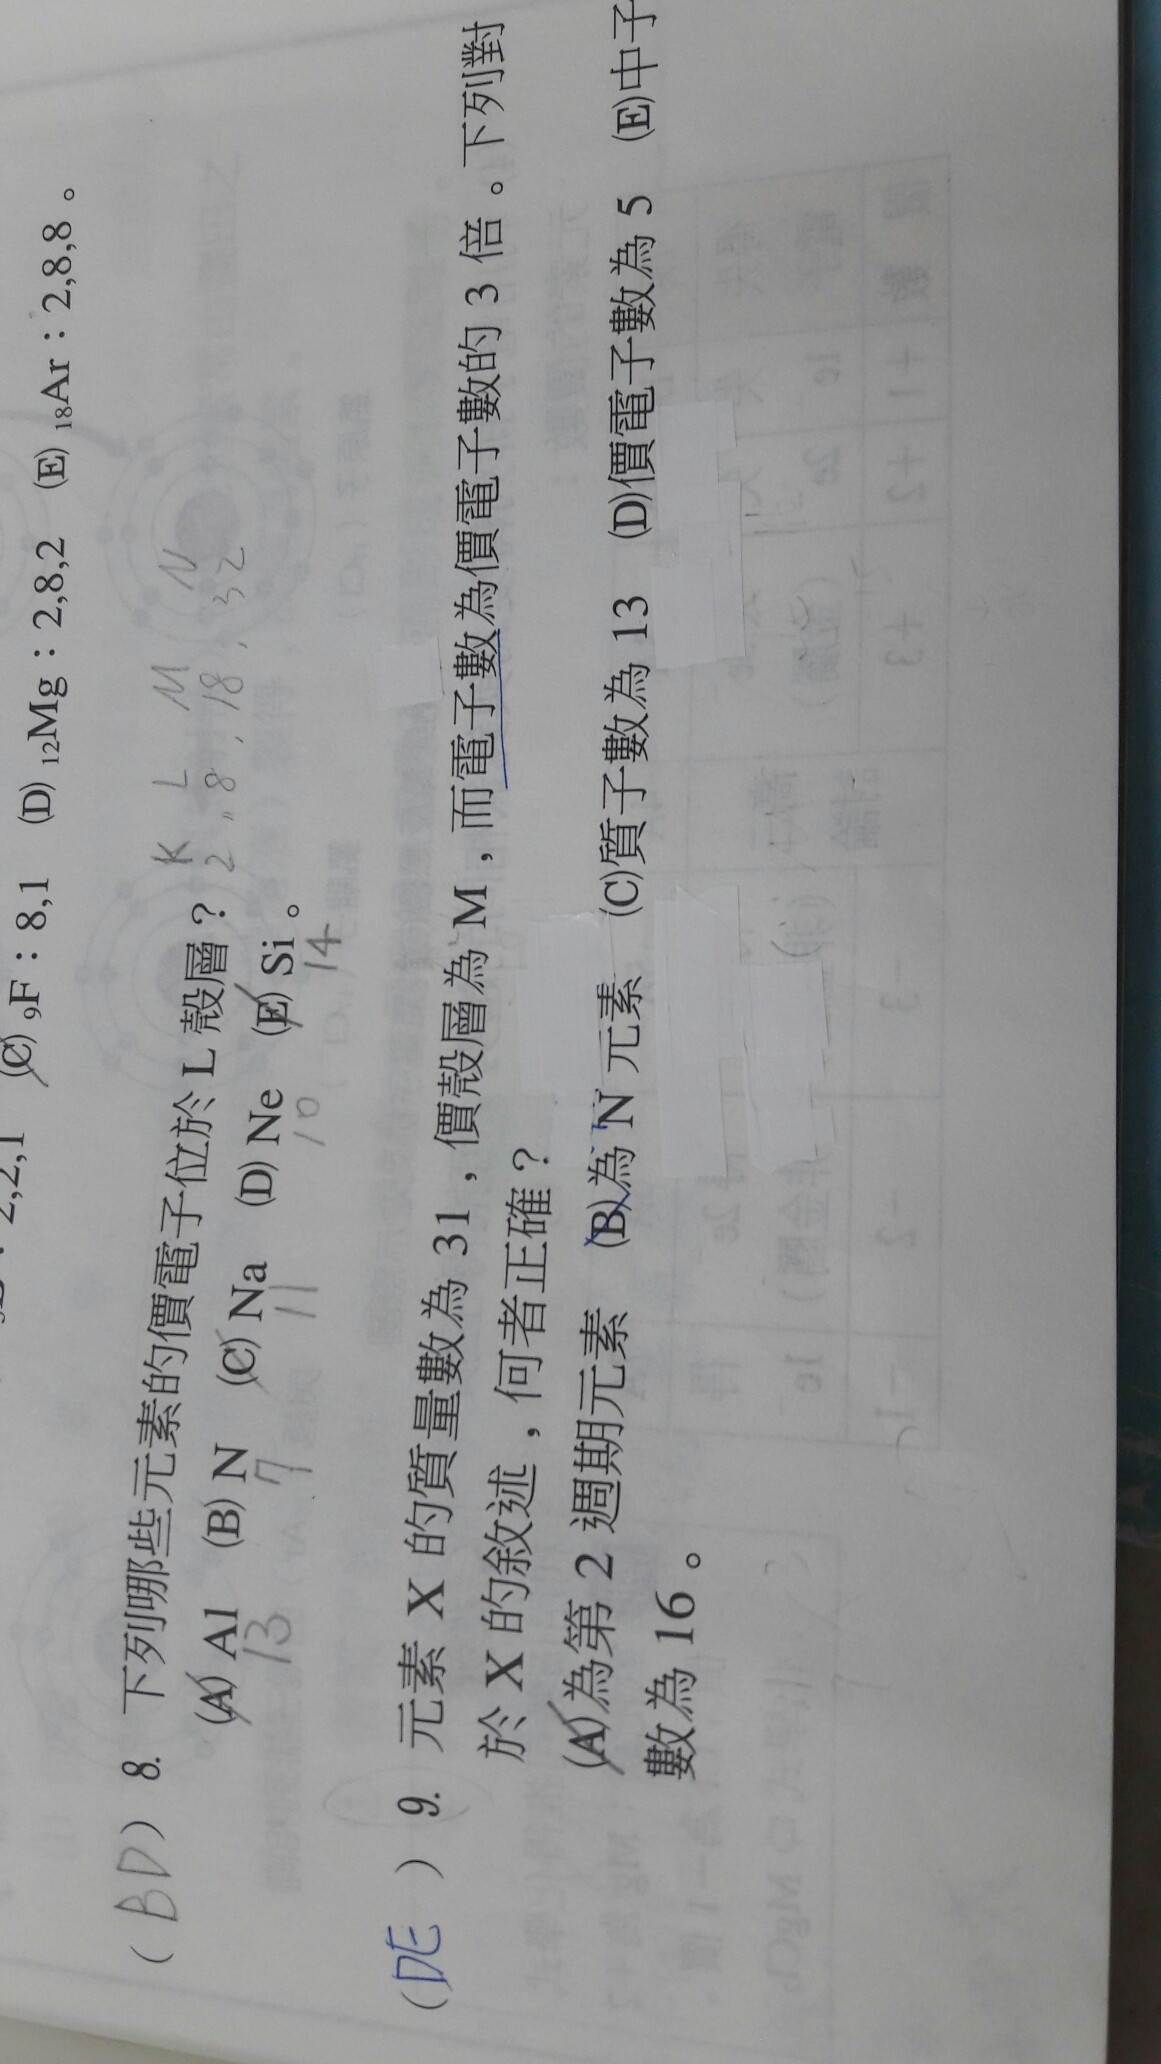 2,2,1 (C) ₉F：8,1 (D) ₁₂Mg：2,8,2 (E) ₁₈Ar：2,8,8。
K L M N
2, 8, 18, 32
(BD) 8. 下列哪些元素的價電子位於 L 殼層？
(A) Al (B) N (C) Na (D) Ne (E) Si。
13 7 11 10 14
(DE) 9. 元素 X 的質量數為 31，價殼層為 M，而電子數為價電子數的 3 倍。下列對
於 X 的敘述，何者正確？
(A)為第 2 週期元素 (B)為 N 元素 (C)質子數為 13 (D)價電子數為 5 (E)中子
數為 16。